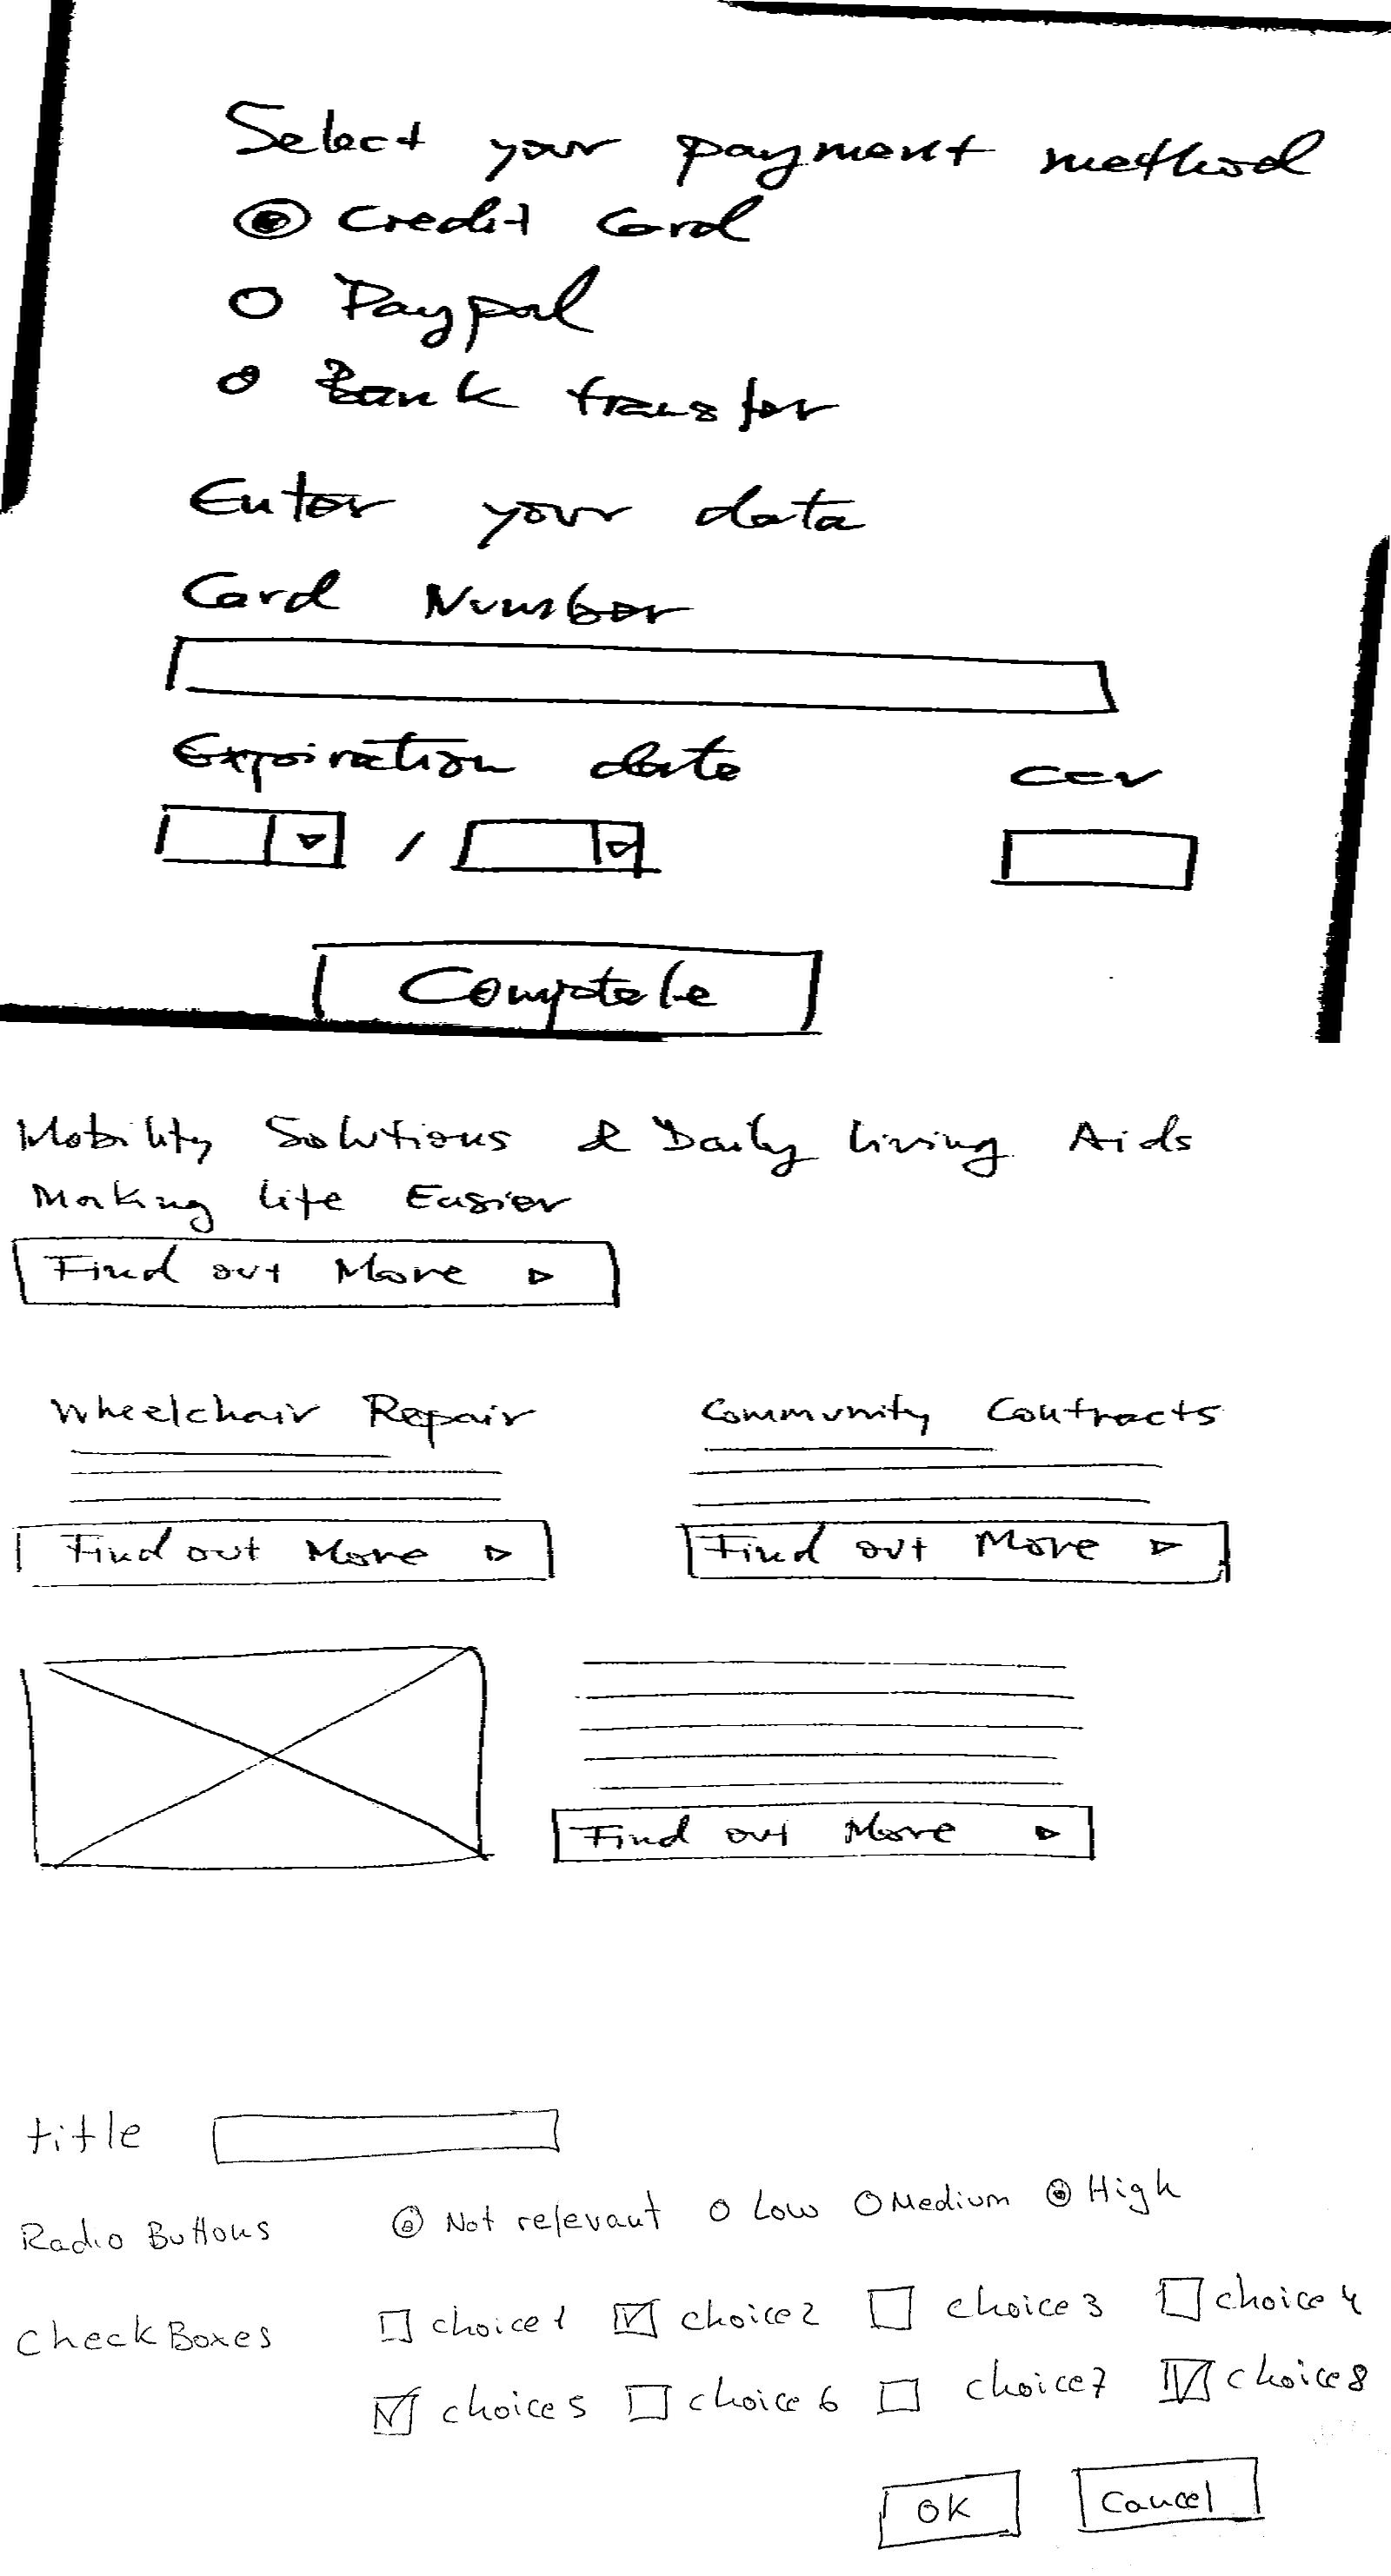 Select your payment method
Credit Card
Paypal
Bank transfer
Enter your data
Card Number
Expiration date ccv
/
Complete
Mobility Solutions & Daily Living Aids
Making life Easier
Find out More
Wheelchair Repair Community Contracts
Find out More Find out More
Find out More
title
Radio Buttons Not relevant Low Medium High
CheckBoxes choice1 choice2 choice3 choice4
choice5 choice6 choice7 choice8
OK Cancel